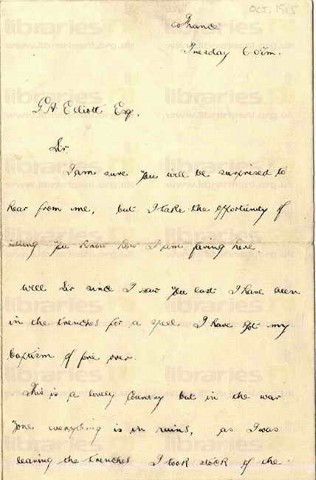 Oct. 1915
France
Tuesday 6 0 p.m.
G.H Elliott Esq.
Sir
I am sure you will be surprised to
hear from me, but I take the opportunity of
letting you know how I am faring here.
Well Sir since I saw you last I have been
in the trenches for a spell. I have got my
baptism of fire over.
This is a lovely country but in the war
zone everything is in ruins, as I was
leaving the trenches I took stock of the